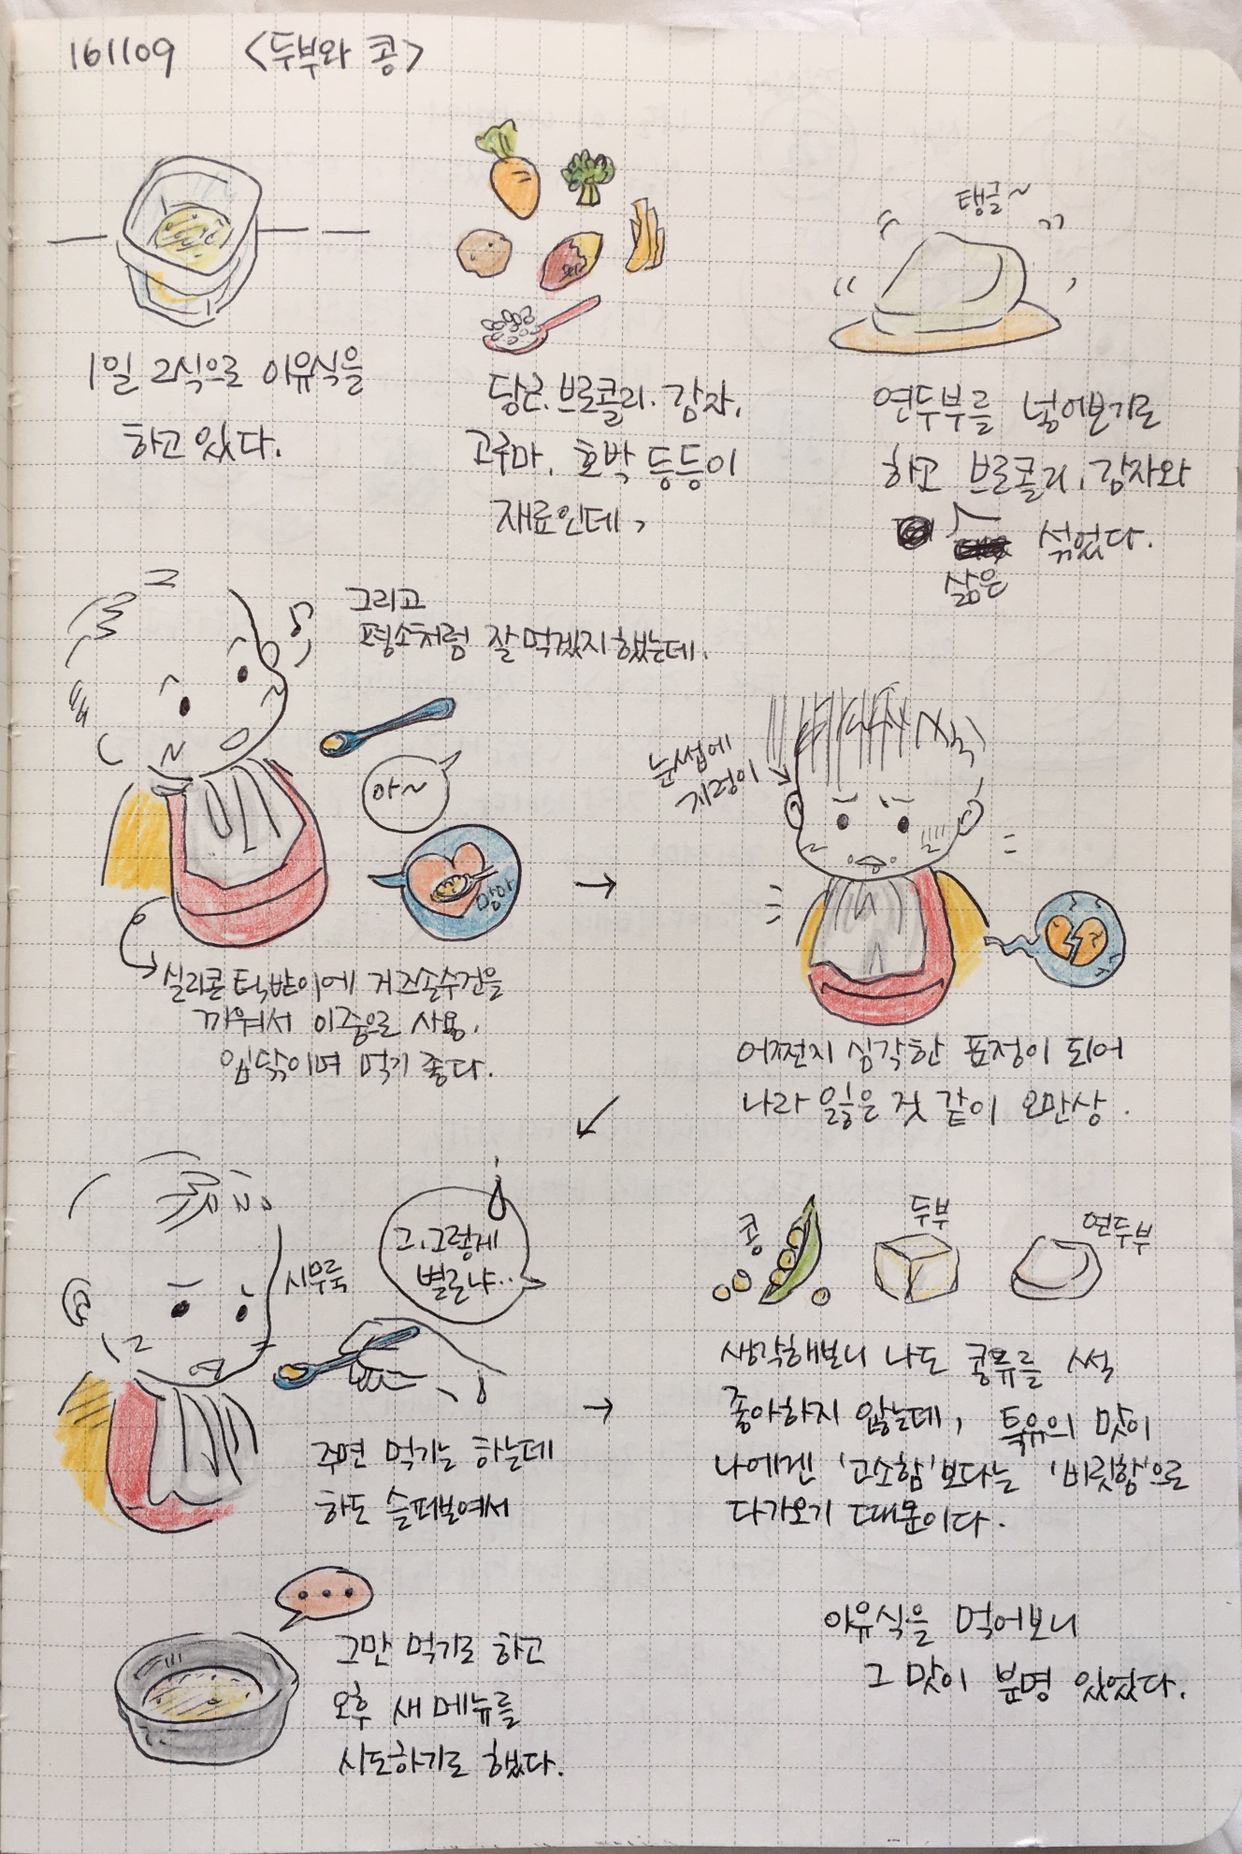 161109 <두부와 콩>
1일 2식으로 이유식을
하고 있다.
당근. 브로콜리. 감자.
고구마. 호박 등등이
재료인데,
탱글~
연두부를 넣어보기로
하고 브로콜리, 감자와
삶은 섞었다.
그리고
평소처럼 잘 먹겠지 했는데.
아~
맘마
실리콘 턱받이에 거즈손수건을
끼워서 이중으로 사용.
입 닦이며 먹기 좋다.
눈썹에
지렁이
어쩐지 심각한 표정이 되어
나라 잃은 것 같이 오만상.
시무룩
그, 그렇게
별로냐..
주면 먹기는 하는데
하도 슬퍼보여서
콩
두부
연두부
생각해보니 나도 콩류를 썩
좋아하지 않는데, 특유의 맛이
나에겐 '고소함'보다는 '비릿함'으로
다가오기 때문이다.
...
그만 먹기로 하고
오후 새 메뉴를
시도하기로 했다.
이유식을 먹어보니
그 맛이 분명 있었다.